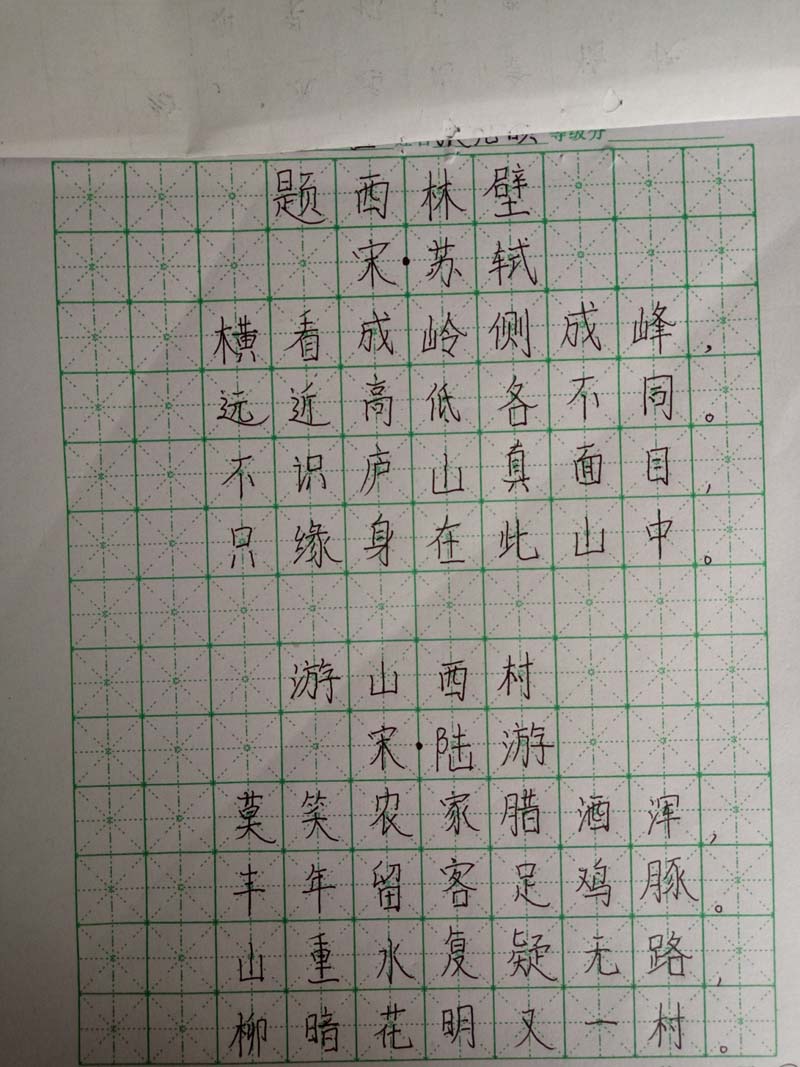 等级分
题西林壁
宋·苏轼
横看成岭侧成峰，
远近高低各不同。
不识庐山真面目，
只缘身在此山中。
游山西村
宋·陆游
莫笑农家腊酒浑，
丰年留客足鸡豚。
山重水复疑无路，
柳暗花明又一村。